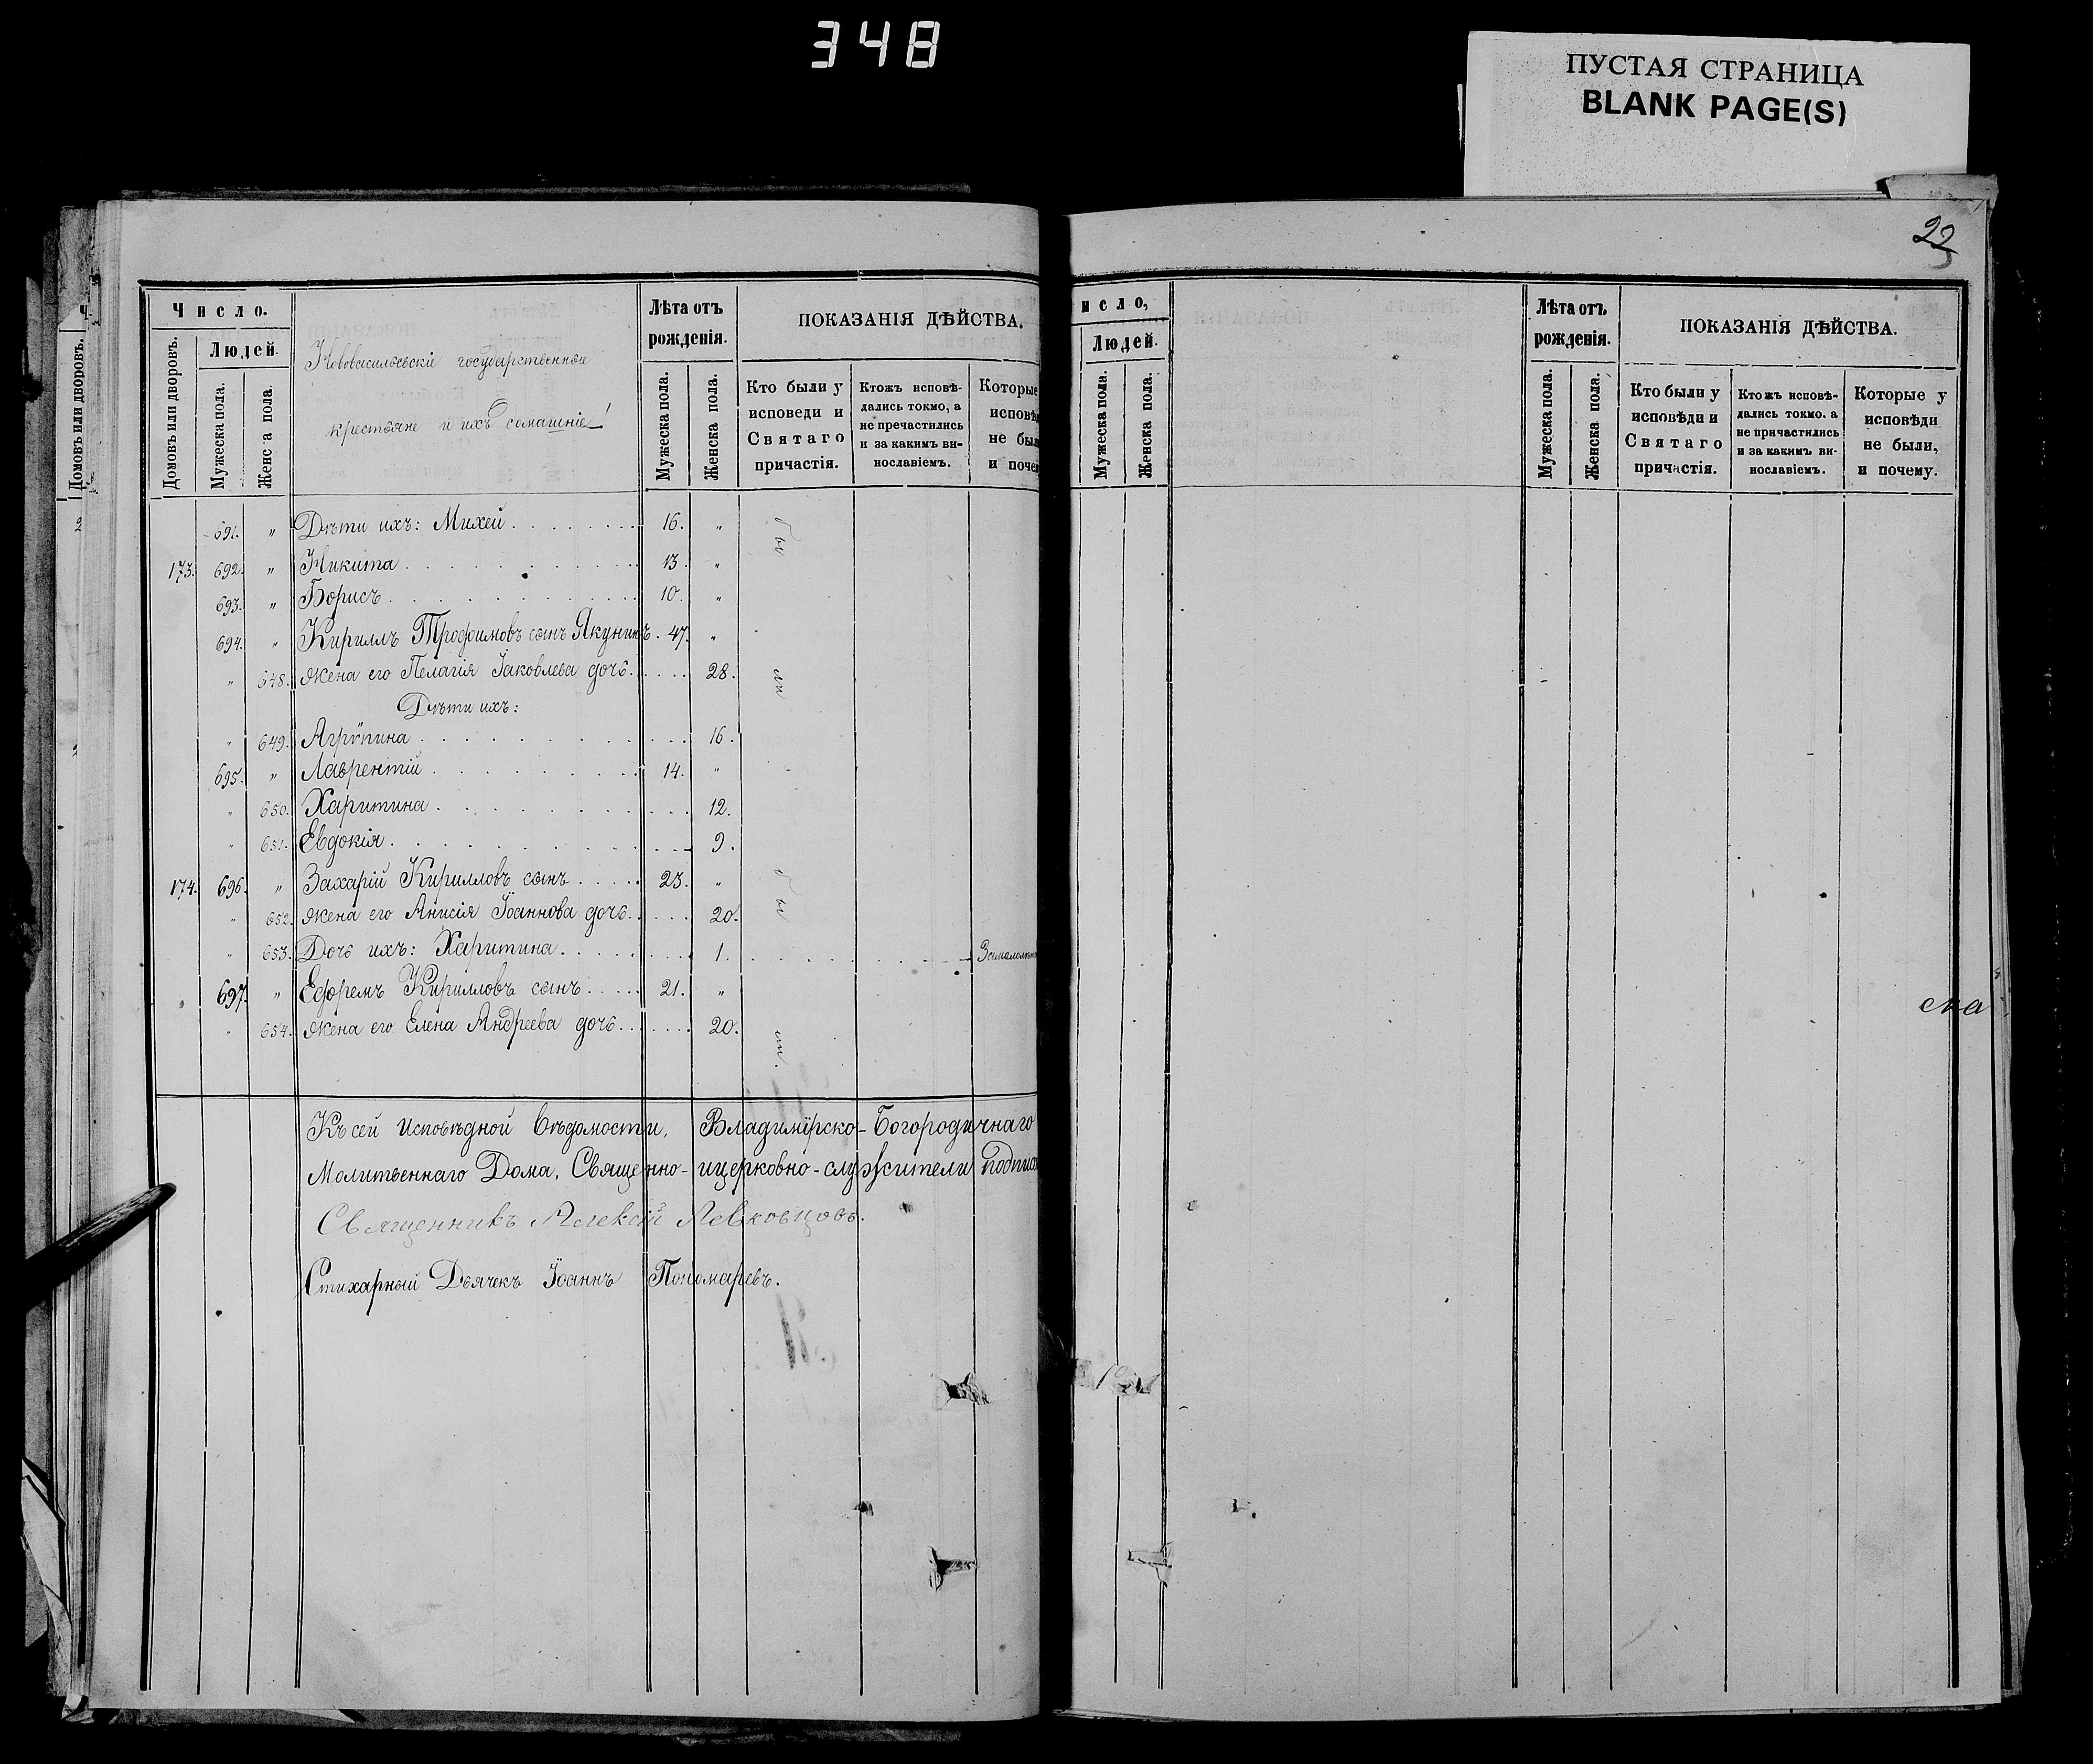 348
ПУСТАЯ СТРАНИЦА
BLANK PAGE(S)
Число.
Людей.
Домовъ или дворовъ.
Мужеска пола.
Женс а пола
Нововасильевскіе государственные
крестьяне и ихъ домашніе!
Лѣта отъ
рожденія.
Мужеска пола.
Женска пола.
ПОКАЗАНІЯ ДѢЙСТВА.
Кто были у
исповеди и
Святаго
причастія.
Ктожъ исповѣ-
дались токмо, а
не пречастились
и за какимъ ви-
нославіемъ.
Которые
исповѣ
не был
и поче
691. " Дѣти ихъ: Михей 16. "
173. 692. " Никита 13. "
693. " Борисъ 10. "
694. " Кириллъ Трофимовъ сынъ Якунинъ. 47. "
" 648. жена его Пелагія Іаковлева дочь 28.
Дѣти ихъ:
" 649. Агрѵпина 16.
695. " Лаврентій 14. "
" 650. Харитина 12.
" 651. Евдокія 9.
174. 696. " Захарій Кирилловъ сынъ 23. "
" 652. жена его Анисія Іоаннова дочь 20.
" 653. Дочь ихъ: Харитина 1.
697. " Ефремъ Кирилловъ сынъ 21. "
" 654. жена его Елена Андреева дочь 20.
бы
ли
бы
ли.
Къ сей Исповѣдной Вѣдомости, Владимірско-Богородичнаго
Молитвеннаго Дома, Священно- ицерковно-служители подписа
Священникъ Алексій Левковцовъ.
Стихарный Дьячекъ Іоаннъ Пономаревъ.
исло,
Людей.
Мужеска пола.
Женска пола.
Лѣта отъ
рожденія.
Мужеска пола.
Женска пола.
ПОКАЗАНІЯ ДѢЙСТВА.
Кто были у
исповѣди и
Святаго
причастія.
Кто жъ исповѣ-
дались токмо. а
не причастились
и за какимъ ви-
нославіемъ.
Которые у
исповѣди
не были,
и почему.